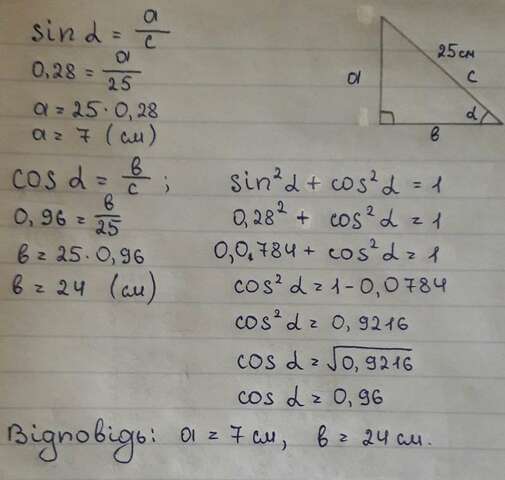 sin α = a/c
0,28 = a/25
a = 25 · 0,28
a = 7 (см)
25 см
c
a
α
в
cos α = в/c ;
0,96 = в/25
в = 25 · 0,96
в = 24 (см)
sin²α + cos²α = 1
0,28² + cos²α = 1
0,0.784 + cos²α = 1
cos²α = 1 - 0,0784
cos²α = 0,9216
cos α = √0,9216
cos α = 0,96
Відповідь: a = 7 см, в = 24 см.